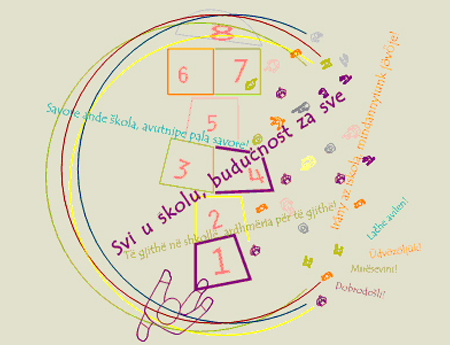 8
6 7
5
3 4
2
1
Savore ande škola, avutnipe pala savore!
Svi u školu, budućnost za sve
Të gjithë në shkollë, ardhmëria për të gjithë!
Irány az iskola, mindannyiunk jövője!
Lačhe avilen!
Üdvözöljük!
Mirësevini!
Dobrodošli!